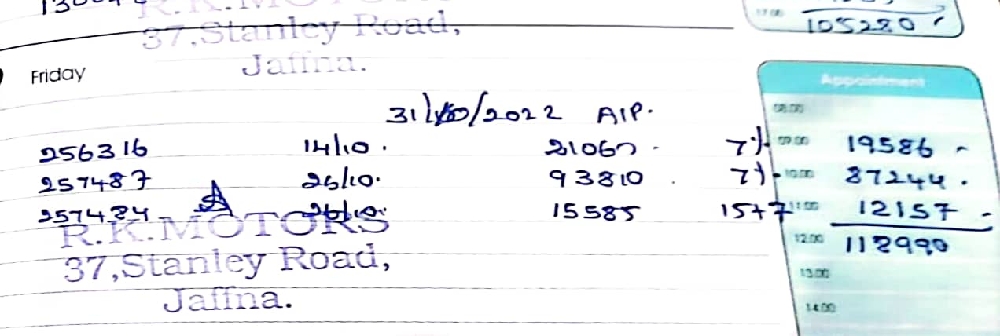 105280
R.K.MOTORS
37,Stanley Road,
Jaffna.
Friday
Appointment
31/10/2022 AIP.
08.00
256316 14/10. 21060 - 7% 09.00 19586
257487 26/10. 93810 . 7% 10.00 87244.
257484 26/10. 15585 15+7 11.00 12157
R.K.MOTORS
12.00 118990
37,Stanley Road,
13.00
Jaffna.
14.00